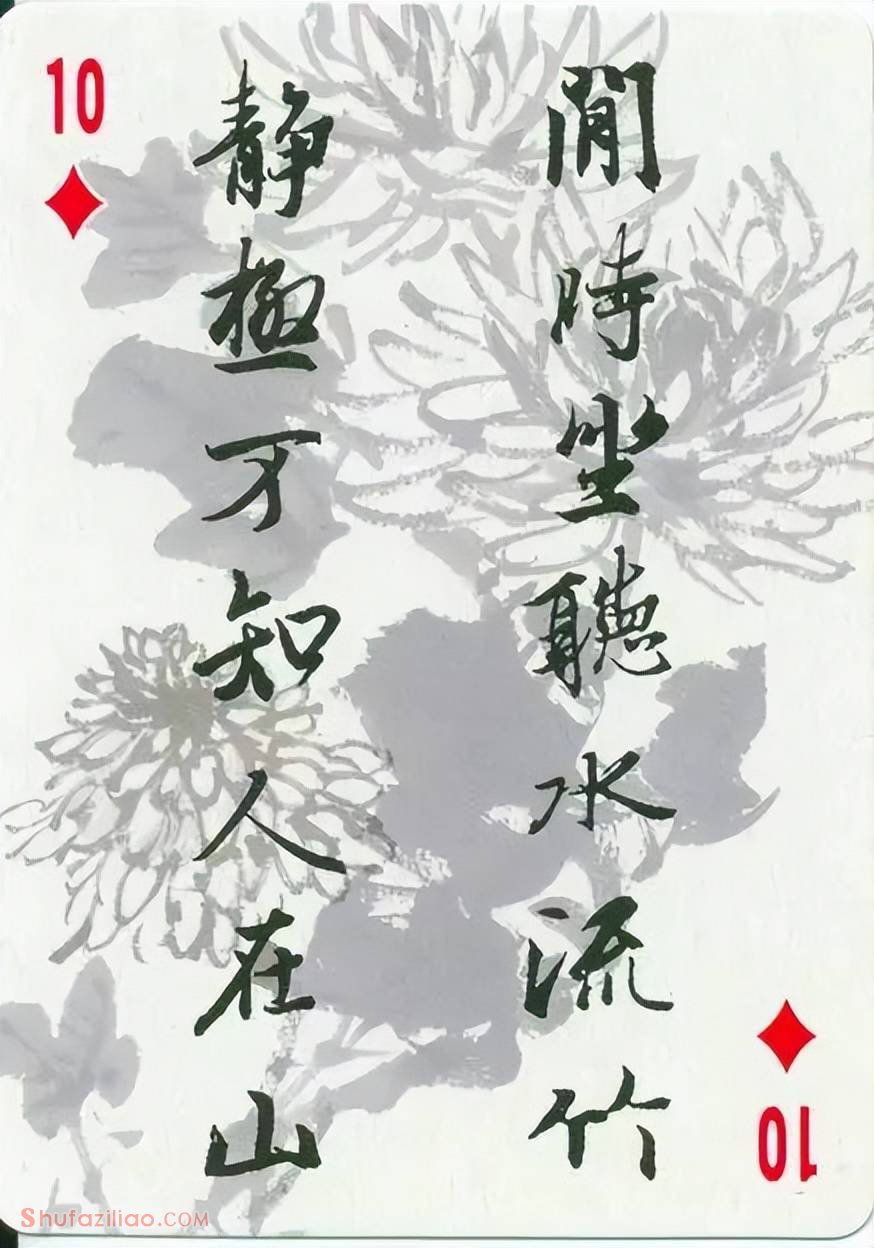 10
閒時坐聽水流竹
静極才知人在山
10
Shufaziliao.com